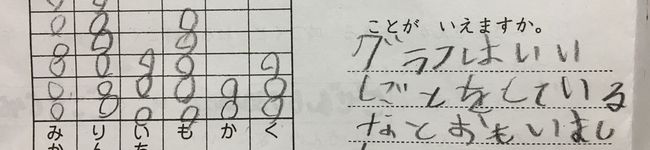 ことが いえますか。
グラフはいい
しごとをしている
なとおもいまし
み
り
い
も
か
く